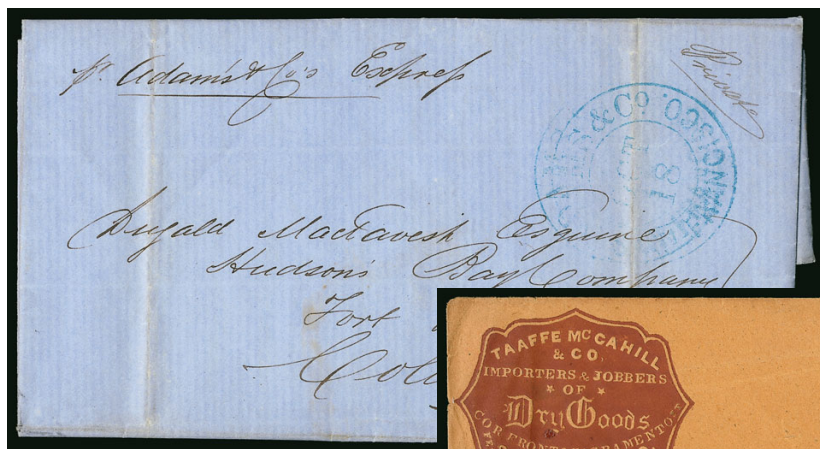 pr. Adams & Co's Express
Private
& Co.
Dugald MacTavish Esquire
Hudson's Bay Company
Fort
TAAFFE McCAHILL
& CO.
IMPORTERS & JOBBERS
OF
Dry Goods
COR FRONT & SACRAMENTO STS